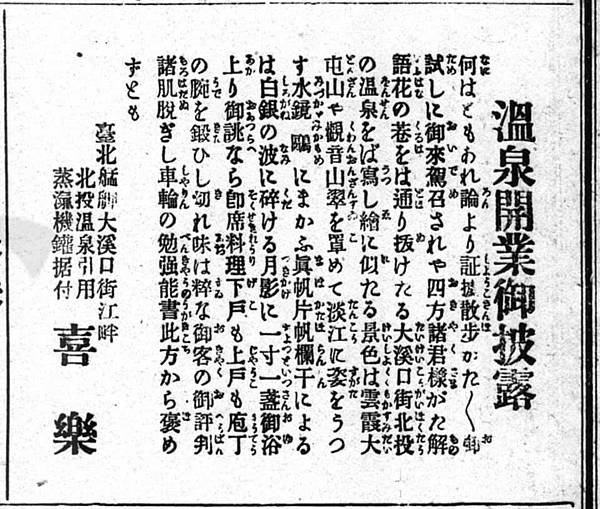 温泉開業御披露
何はともあれ論より証拠散歩かた〲御
試しに御來駕召されや四方諸君樣がた解
語花の巷をば通り拔けたる大溪口街北投
の温泉をば寫し繪に似たる景色は雲霞大
屯山や觀音山翠を罩めて淡江に姿をうつ
す水鏡 鷗にまかふ眞帆片帆欄干による
は白銀の波に碎ける月影に一寸一盞御浴
上り御誂なら卽席料理下戶も上戶も庖丁
の腕を鍛ひし切れ味は粹な御客の御評判
諸肌脫ぎし車輪の勉强能書此方から褒め
ずとも
臺北艋舺大溪口街江畔
北投温泉引用
蒸滊機鑵据付
喜樂